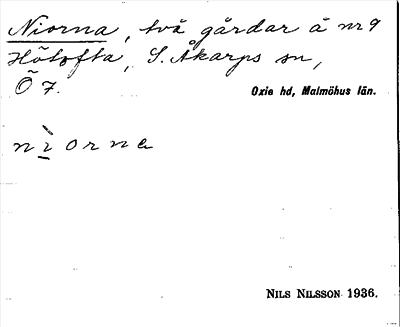 Niorna, två gårdar å nr 9
Hötofta, S. Åkarps sn,
Ö 7.
Oxie hd, Malmöhus län.
nìorna
NILS NILSSON 1936.